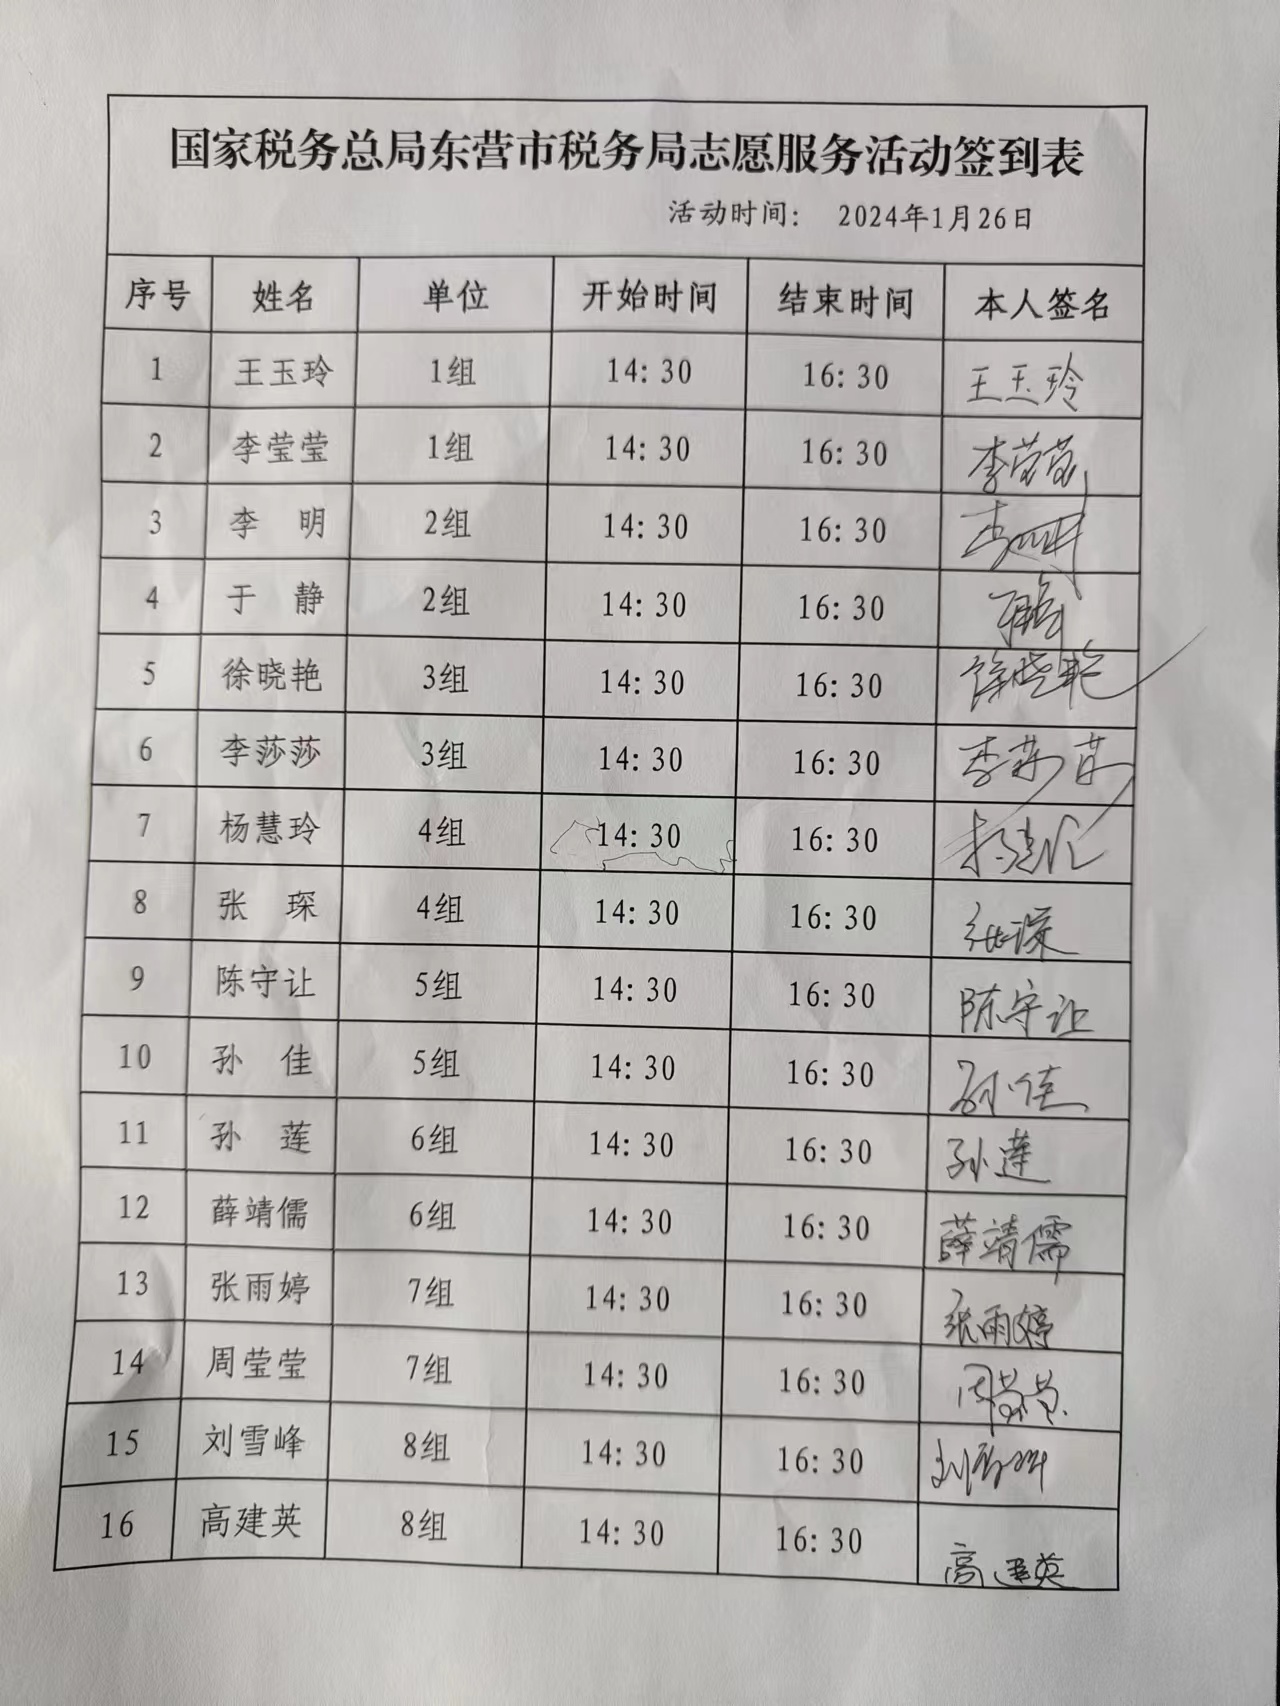 国家税务总局东营市税务局志愿服务活动签到表
活动时间： 2024年1月26日
序号 姓名 单位 开始时间 结束时间 本人签名
1 王玉玲 1组 14:30 16:30 王玉玲
2 李莹莹 1组 14:30 16:30 李莹莹
3 李 明 2组 14:30 16:30 李明
4 于 静 2组 14:30 16:30 于静
5 徐晓艳 3组 14:30 16:30 徐晓艳
6 李莎莎 3组 14:30 16:30 李莎莎
7 杨慧玲 4组 14:30 16:30
8 张 琛 4组 14:30 16:30 张琛
9 陈守让 5组 14:30 16:30 陈守让
10 孙 佳 5组 14:30 16:30 孙佳
11 孙 莲 6组 14:30 16:30 孙莲
12 薛靖儒 6组 14:30 16:30 薛靖儒
13 张雨婷 7组 14:30 16:30 张雨婷
14 周莹莹 7组 14:30 16:30 周莹莹
15 刘雪峰 8组 14:30 16:30 刘雪峰
16 高建英 8组 14:30 16:30 高建英